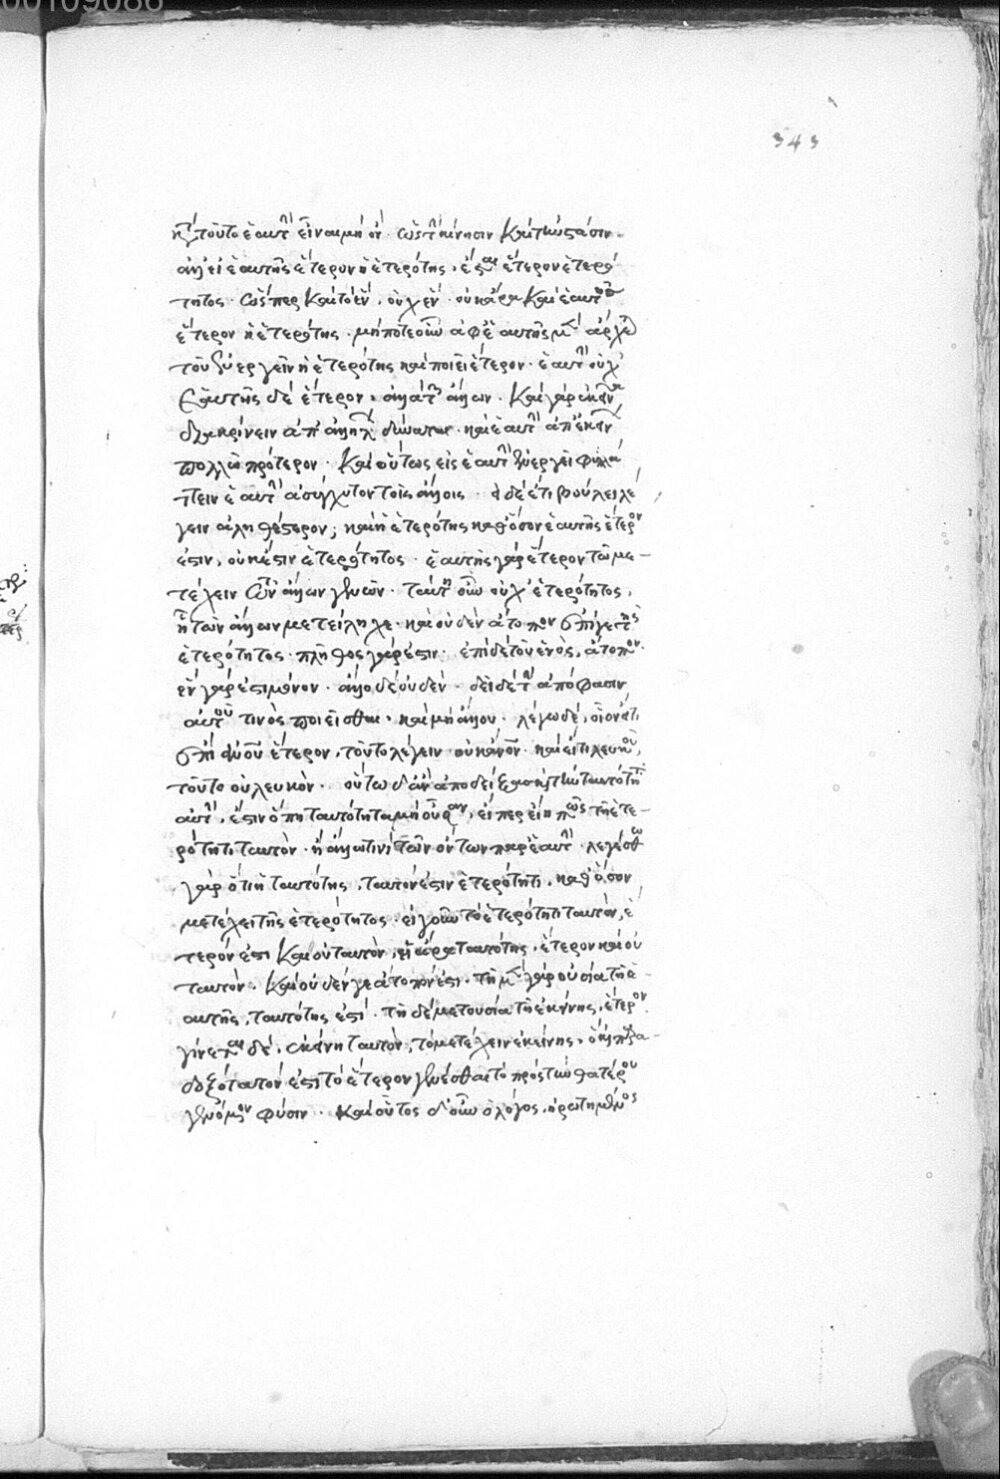 00109086
343
κατὰ τοῦτο ἑαυτὴν εἶναι μὴ ὄν. ὡς τὴν κίνησιν καὶ τὴν στάσιν.
ἀλλ' εἰ ἑαυτῆς ἕτερον ἡ ἑτερότης, ἔσται ἕτερον ἑτερό
τητος. ὥσπερ καὶ τὸ ἓν, οὐχ ἕν. οὐκ ἄρα καὶ ἑαυτοῦ
ἕτερον ἡ ἑτερότης. μήποτε οὖν ἀφ' ἑαυτῆς μὲν ἄρχεται
τοῦ ἐνεργεῖν ἡ ἑτερότης καὶ ποιεῖ ἕτερον ἑαυτὴν οὐχ
ἑαυτῆς δὲ ἕτερον, ἀλλὰ τῶν ἄλλων. καὶ γὰρ ἐκεῖνα
διακρίνειν ἀπ' ἀλλήλων δύναται. καὶ ἑαυτὴν ἀπ' ἐκείνων
πολλῷ πρότερον. καὶ οὕτως εἰς ἑαυτὴν ἐνεργεῖ φυλά
ττειν ἑαυτὴν ἀσύγχυτον τοῖς ἄλλοις. εἰ δὲ ἔτι βούλει λέ
γειν ἀληθέστερον, καὶ ἡ ἑτερότης καθ' ὅσον ἑαυτῆς ἕτερόν
ἐστιν, οὐκ ἔστιν ἑτερότητος. ἑαυτῆς γὰρ ἕτερον τῷ με-
τέχειν τῶν ἄλλων γενῶν. ταύτῃ οὖν οὐχ' ἑτερότητος,
ᾗ τῶν ἄλλων μετείληχε. καὶ οὐδὲν ἄτοπον ἐπί γε τῆς
ἑτερότητος. πλῆθος γάρ ἐστιν. ἐπὶ δὲ τοῦ ἑνὸς, ἄτοπον.
ἓν γάρ ἐστι μόνον. ἄλλο δὲ οὐδέν. δεῖ δὲ τὴν ἀπόφασιν
αὐτοῦ τινὸς ποιεῖσθαι. καὶ μὴ ἄλλου. λέγω δὲ, οἷον ἄν τι
ἐπὶ
τοῦτο οὐ λευκόν. οὕτω δ' ἂν ἀποδείξαις καὶ τὴν ταυτότητα
αὐτὴν, ἔστιν ὅπῃ ταυτότητα μὴ οὖσαν, εἴπερ εἴη πως τῇ ἑτε-
ρότητι ταυτὸν. ἢ ἄλλῳ τινὶ τῶν ὄντων παρ' ἑαυτήν. λεγέσθω
γὰρ ὅτι ἡ ταυτότης, ταυτόν ἐστιν ἑτερότητι, καθ' ὅσον
μετέχει τῆς ἑτερότητος. εἰ γοῦν τὸ ἑτερότητι ταυτὸν, ἕ
τερόν ἐστι καὶ οὐ ταυτὸν, ἡ ἄρα ταυτότης, ἕτερον καὶ οὐ
ταυτὸν. καὶ οὐδέν γε ἄτοπόν ἐστι. τῇ μὲν γὰρ οὐσίᾳ τῇ ἑ-
αυτῆς, ταυτότης ἐστί. τῇ δὲ μετουσίᾳ τῇ ἐκείνης, ἕτερον.
γίνεται δὲ, ἐκείνῃ ταυτὸν, τὸ μετέχειν ἐκείνης. ὃ καὶ παρα-
δοξότατόν ἐστι τὸ ἕτερον γενέσθαι τὸ πρὸς τὴν θατέρου
γενόμενον φύσιν. καὶ οὗτος δ' οὖν ὁ λόγος,